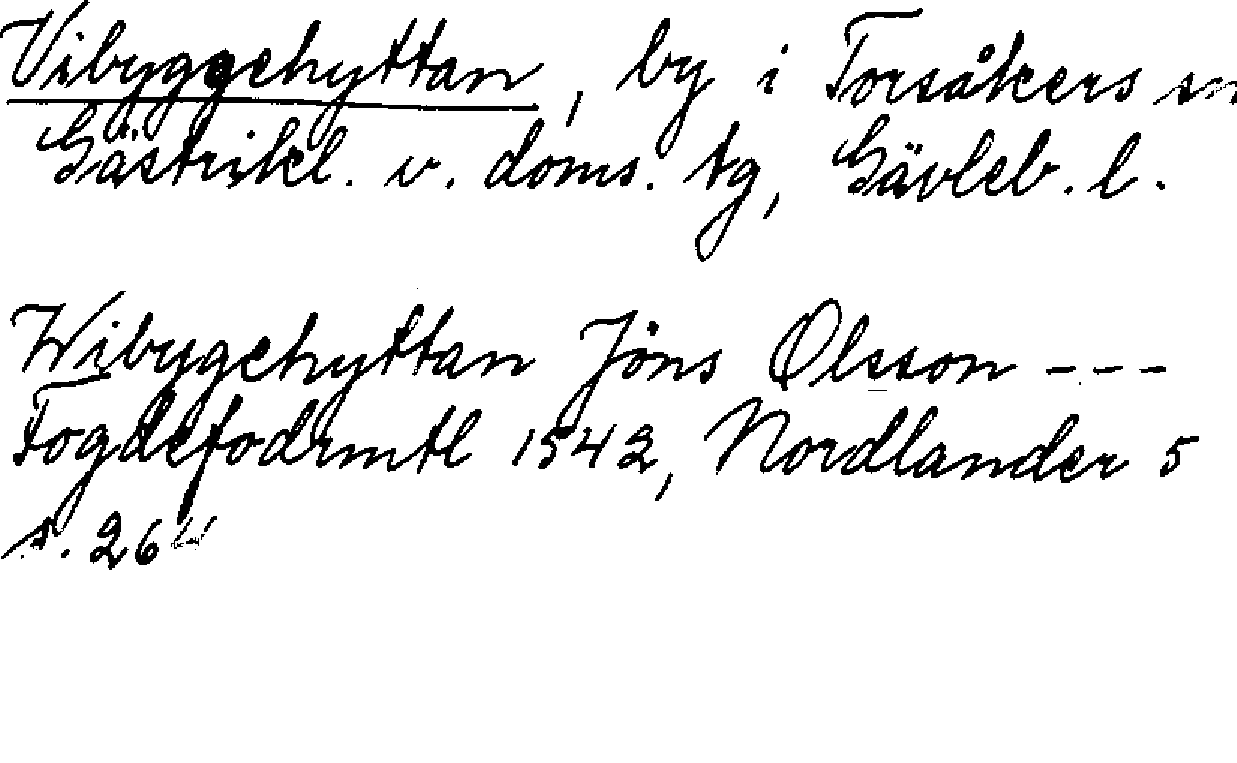 Vibyggehyttan, by i Torsåkers sn
Gästrikl. v. doms. tg, Gävleb. l.
Wibygehyttan Jöns Olsson ---
Fogdefodrmtl 1542, Nordlander 5
s. 264